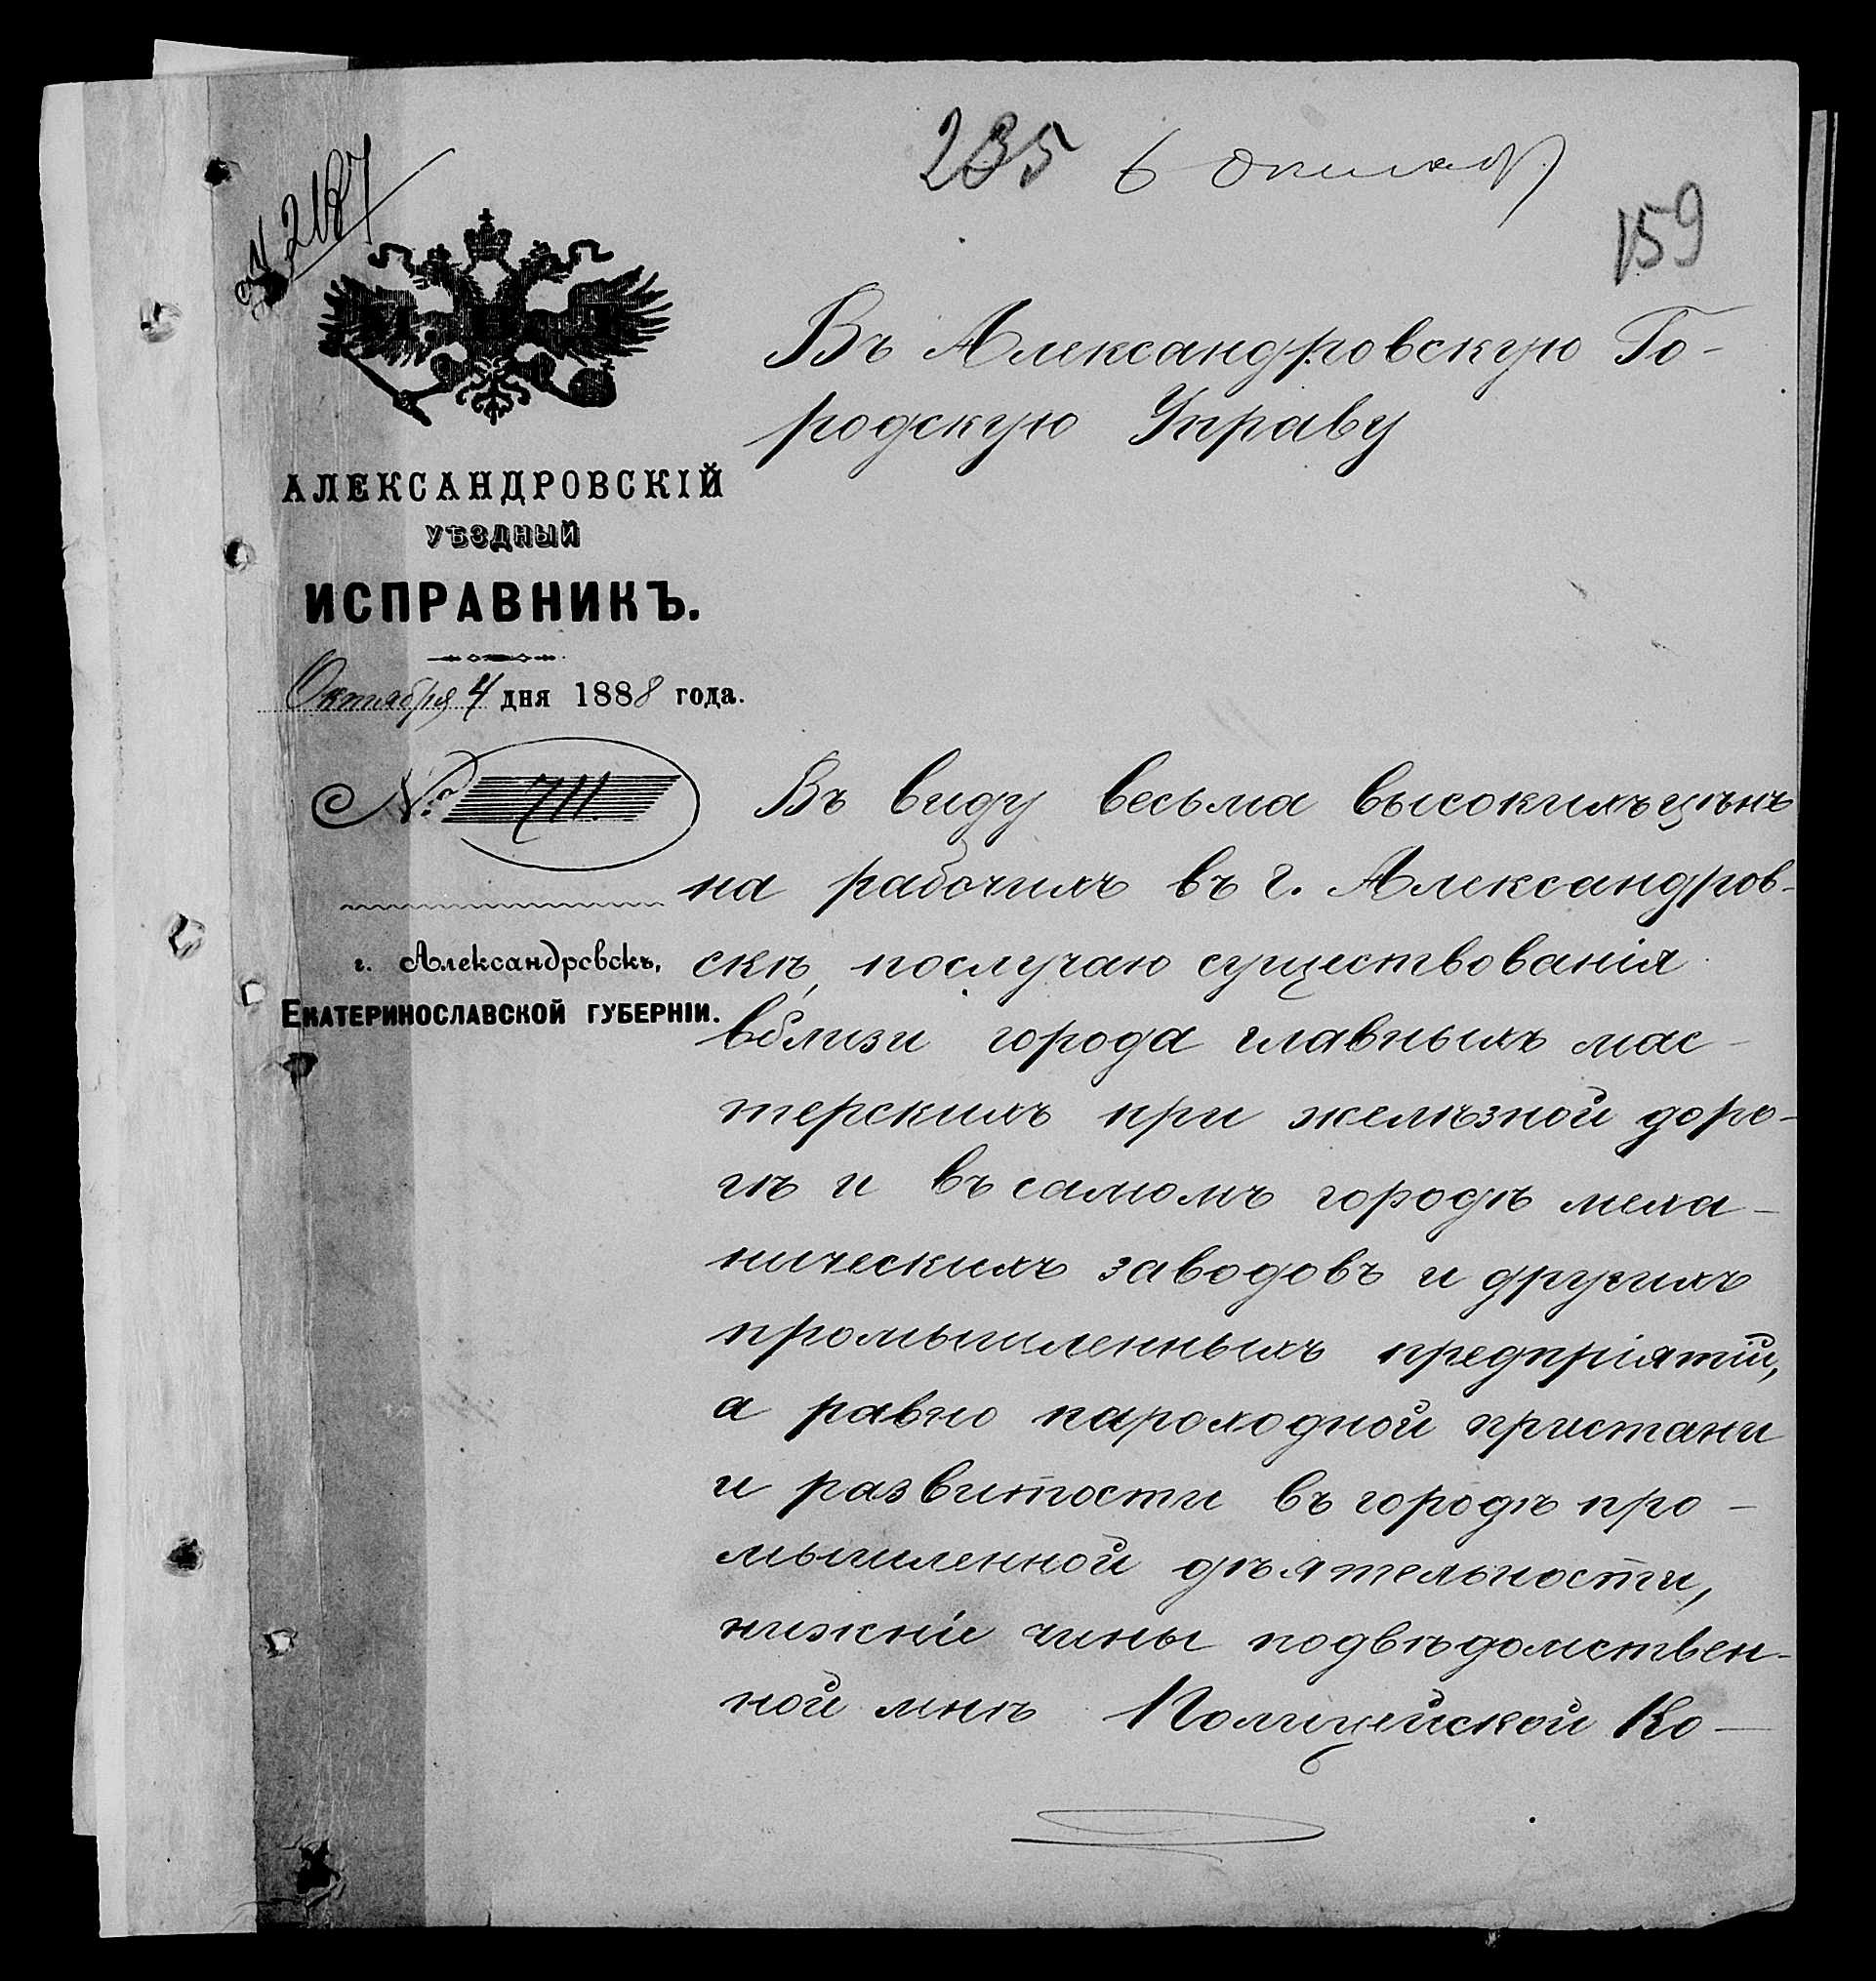 235 6 Октября
159
№ 2187
Въ Александровскую Го-
родскую Управу
АЛЕКСАНДРОВСКІЙ
УѢЗДНЫЙ
ИСПРАВНИКЪ.
Октября 4 дня 1888 года.
№ 711.
г. Александровскъ,
ЕКАТЕРИНОСЛАВСКОЙ ГУБЕРНІИ.
Въ виду весьма высокихъ цѣнъ
на рабочихъ въ г. Александров-
скѣ, послучаю существованія
вблизи города главныхъ мас-
терскихъ при желѣзной доро-
гѣ и въ самомъ городѣ меха-
ническихъ заводовъ и другихъ
промышленныхъ предпріятій,
а равно пароходной пристани
и развитости въ городѣ про-
мышленной дѣятельности,
нижніе чины подвѣдомствен-
ной мнѣ Полицейской Ко-